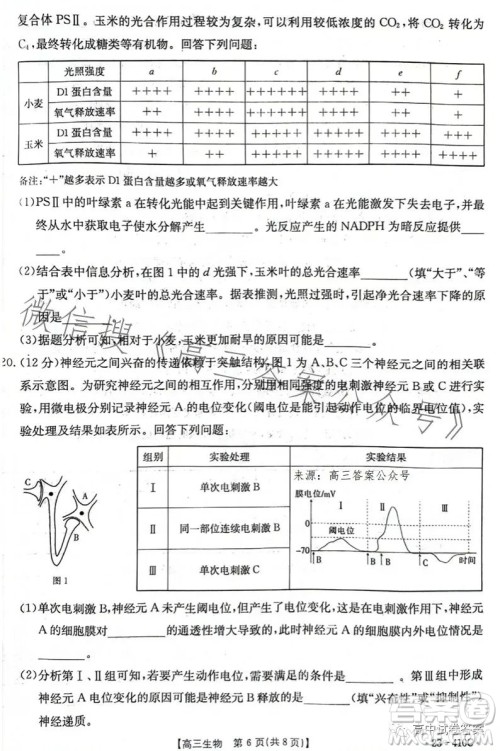 复合体PSⅡ。玉米的光合作用过程较为复杂,可以利用较低浓度的CO₂,将CO₂转化为
C₄,最终转化成糖类等有机物。回答下列问题:
光照强度 a b c d e f
小麦 D1蛋白含量 ++++ ++++ +++ ++ ++ +
氧气释放速率
玉米 D1蛋白含量
氧气释放速率
备注:“+”越多表示D1蛋白含量越多或氧气释放速率越大
(1)PSⅡ中的叶绿素a在转化光能中起到关键作用,叶绿素a在光能激发下失去电子,并最
终从水中获取电子使水分解产生______。光反应产生的NADPH为暗反应提供______
______。
(2)结合表中信息分析,在图1中的d光强下,玉米叶的总光合速率______(填“大于”、“等
于”或“小于”)小麦叶的总光合速率。据表推测,光照过强时,小麦光合速率降低的原
因是______。
(3)据题意分析可知,相对于小麦,玉米更加耐旱的原因可能是______。
20.(12分)神经元之间兴奋的传递依赖于突触结构,图1为A、B、C三个神经元之间的相关联
系示意图。为研究神经元之间的相互作用,分别用相同强度的电刺激神经元B或C进行实
验,用微电极分别记录神经元A的电位变化(阈电位是能引起动作电位的临界电位值),实
验处理及结果如图。回答下列问题:
组别 实验处理 实验结果
Ⅰ 单次电刺激B
Ⅱ 同一部位连续电刺激B
Ⅲ 单次电刺激C
来源:高三答案公众号
膜电位/mV
Ⅰ Ⅱ Ⅲ
0
阈电位
-70
B B B C 时间
C A B
图1
(1)单次电刺激B,神经元A未产生阈电位,但产生了电位变化,这是与在电刺激下,神经元A
的细胞膜对______的通透性增大导致的,此时神经元A的细胞膜内电位情况是
______。
(2)分析第Ⅰ、Ⅱ组可知,若要产生动作电位,需要满足的条件是______。第Ⅲ组中形成
的神经元A的电位变化,其最可能的原因是______(填“兴奋性”或“抑制性”)
神经递质。
【高三生物 第6页(共8页)】
23-410C
微信搜《高三答案公众号》
高中试卷答案